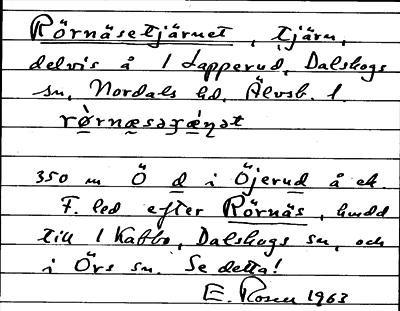 Rörnäsetjärnet, tjärn,
delvis å 1 Lapperud, Dalskogs
sn, Nordals hd, Älvsb. l.
rø̀rnæsəʒæ̀ɳət
350 m Ö d i Öjerud å ek.
F. led efter Rörnäs, hmdd
till 1 Kabbo, Dalskogs sn, och
i Örs sn. Se detta!
E. Rosen 1963